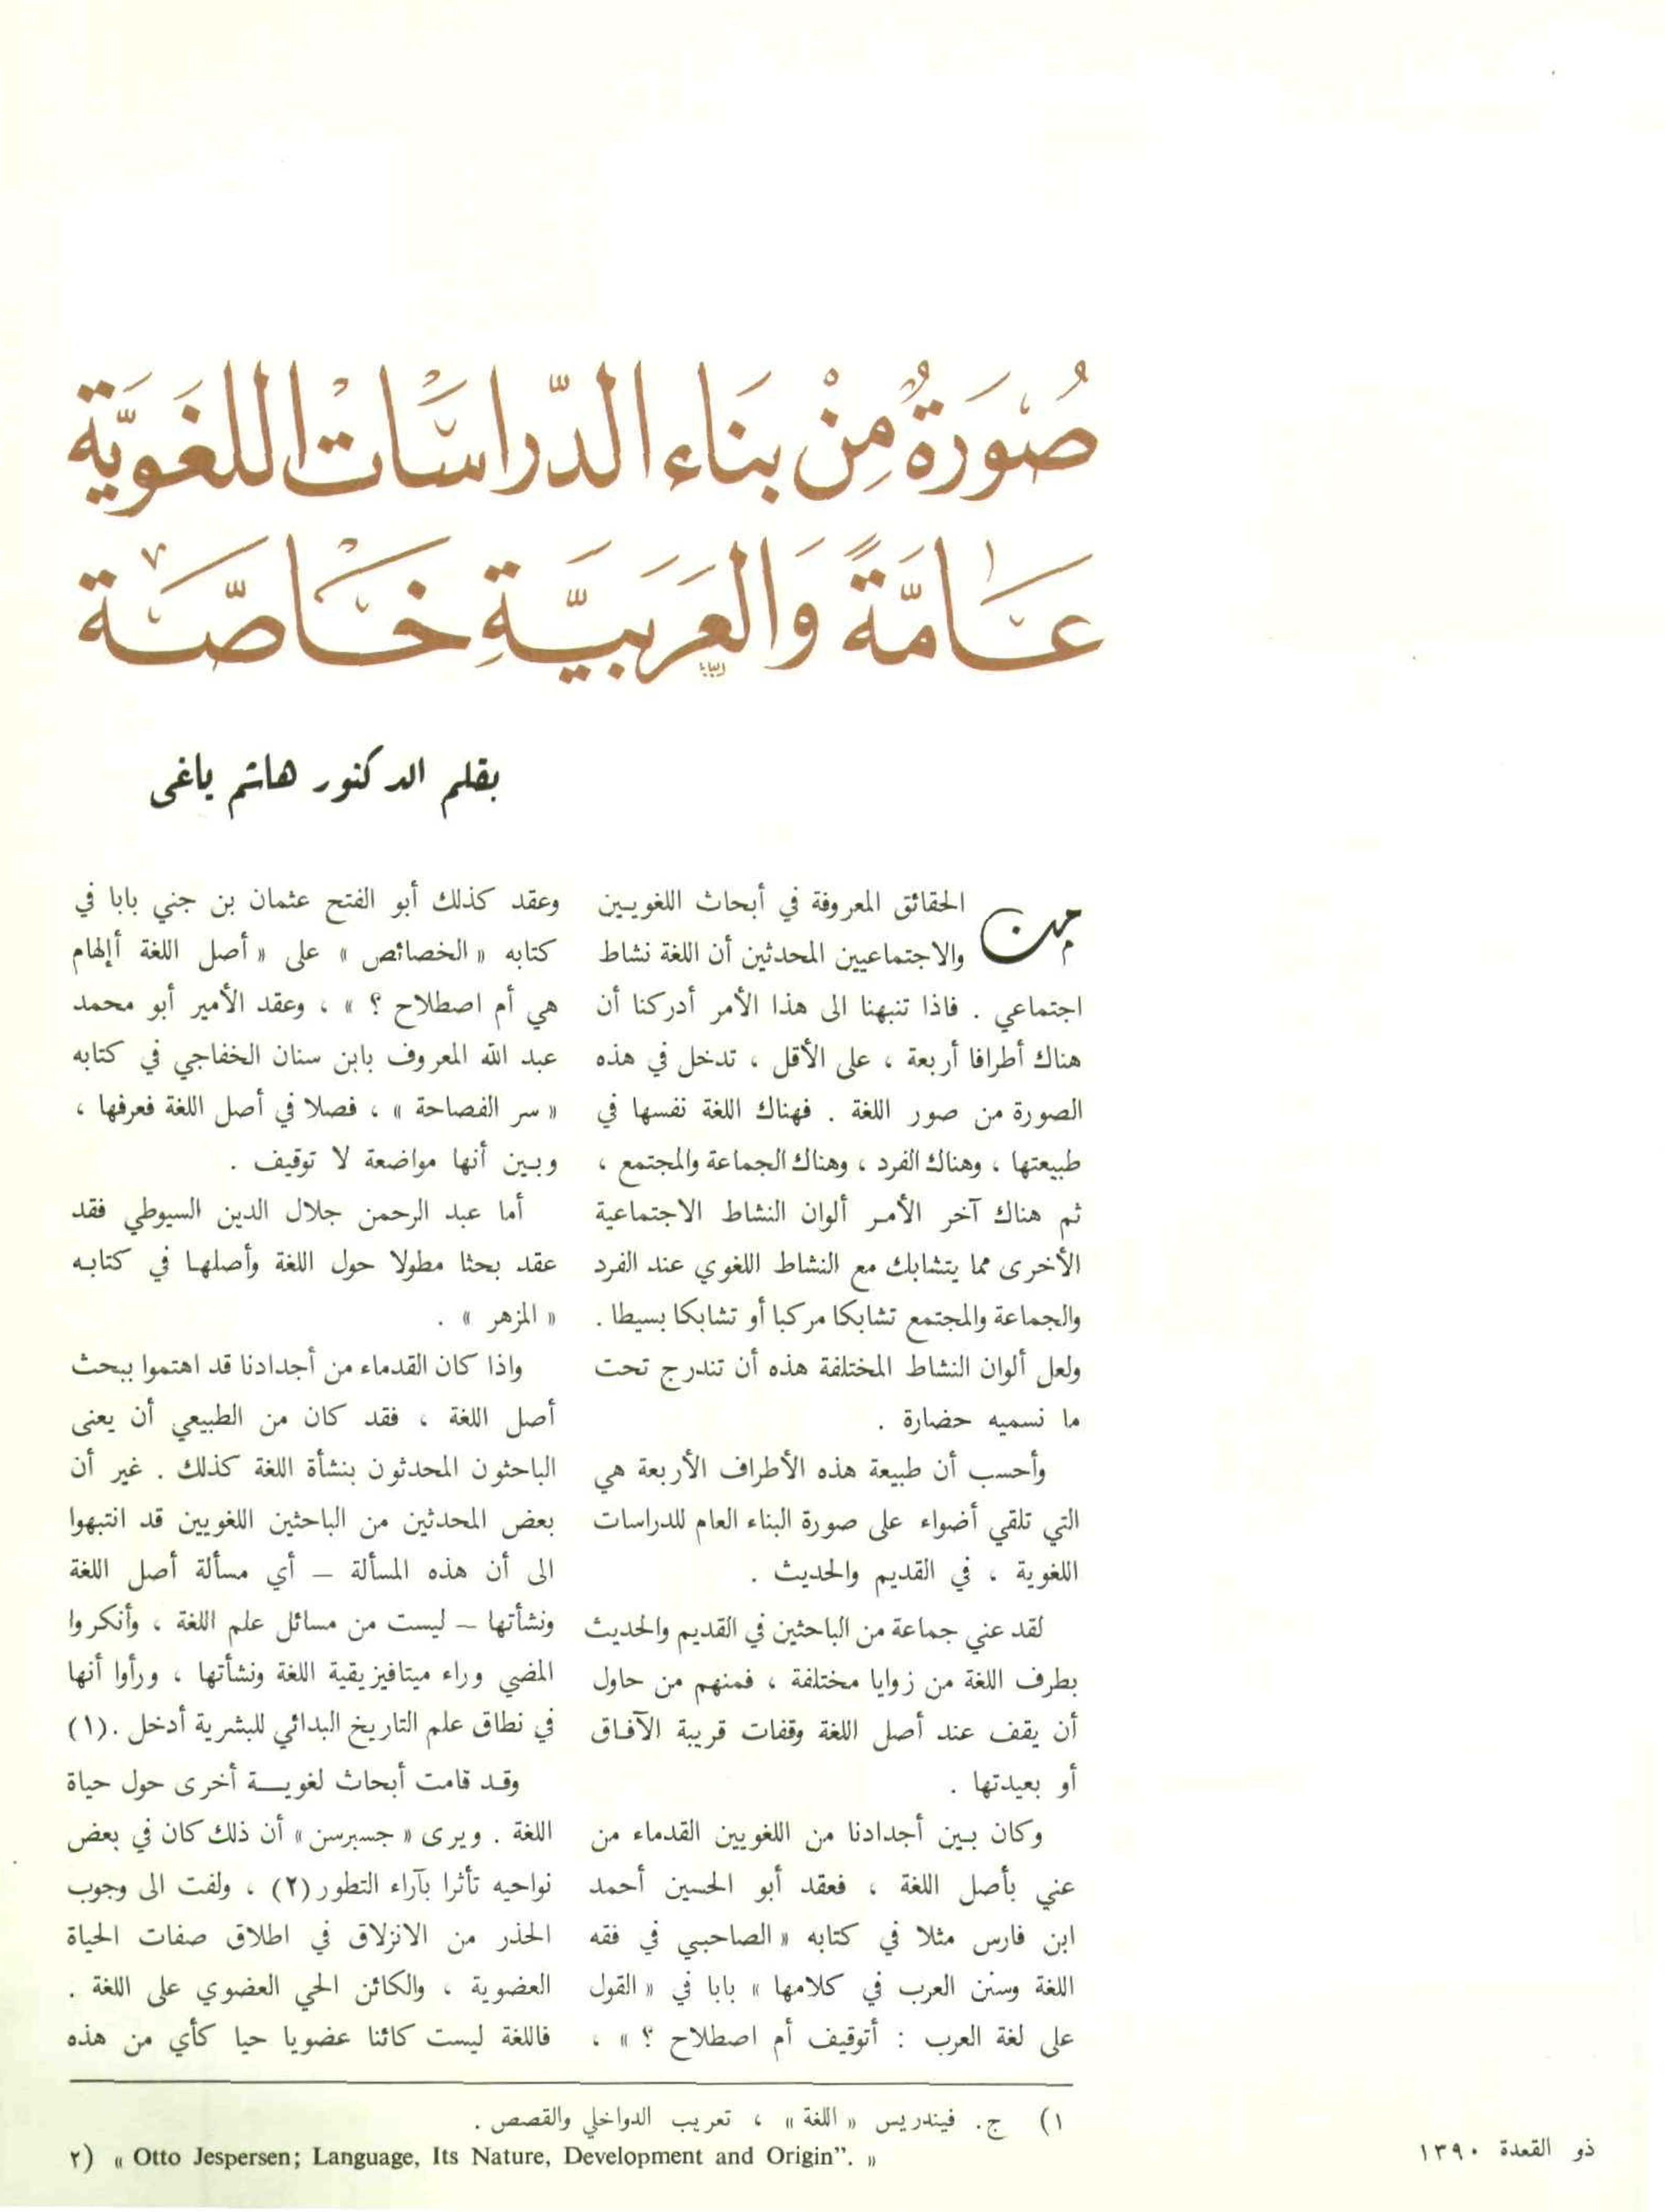 صُورَةٌ مِنْ بنَاء الدّراسَات اللغَويَّة
عَامَّةً وَالعَرَبيَّةِ خَاصَّة
بقلم الدكتور هاشم ياغي
من الحقائق المعروفة في أبحاث اللغويين
والاجتماعيين المحدثين أن اللغة نشاط
اجتماعي . فاذا تنبهنا الى هذا الأمر أدركنا أن
هناك أطرافا أربعة ، على الأقل ، تدخل في هذه
الصورة من صور اللغة . فهناك اللغة نفسها في
طبيعتها ، وهناك الفرد ، وهناك الجماعة والمجتمع ،
ثم هناك آخر الأمر ألوان النشاط الاجتماعية
الأخرى مما يتشابك مع النشاط اللغوي عند الفرد
والجماعة والمجتمع تشابكا مركبا أو تشابكا بسيطا .
ولعل ألوان النشاط المختلفة هذه أن تندرج تحت
ما نسميه حضارة .
وأحسب أن طبيعة هذه الأطراف الأربعة هي
التي تلقي أضواء على صورة البناء العام للدراسات
اللغوية ، في القديم والحديث .
لقد عني جماعة من الباحثين في القديم والحديث
بطرف اللغة من زوايا مختلفة ، فمنهم من حاول
أن يقف عند أصل اللغة وقفات قريبة الآفاق
أو بعيدتها .
وكان بين أجدادنا من اللغويين القدماء من
عني بأصل اللغة ، فعقد أبو الحسين أحمد
ابن فارس مثلا في كتابه « الصاحبي في فقه
اللغة وسنن العرب في كلامها » بابا في « القول
على لغة العرب : أتوقيف أم اصطلاح ؟ » ،
وعقد كذلك أبو الفتح عثمان بن جني بابا في
كتابه « الخصائص » على « أصل اللغة أإلهام
هي أم اصطلاح ؟ » ، وعقد الأمير أبو محمد
عبد الله المعروف بابن سنان الخفاجي في كتابه
« سر الفصاحة » ، فصلا في أصل اللغة فعرفها ،
وبين أنها مواضعة لا توقيف .
أما عبد الرحمن جلال الدين السيوطي فقد
عقد بحثا مطولا حول اللغة وأصلها في كتابه
« المزهر » .
واذا كان القدماء من أجدادنا قد اهتموا ببحث
أصل اللغة ، فقد كان من الطبيعي أن يعنى
الباحثون المحدثون بنشأة اللغة كذلك . غير أن
بعض المحدثين من الباحثين اللغويين قد انتبهوا
الى أن هذه المسألة – أي مسألة أصل اللغة
ونشأتها – ليست من مسائل علم اللغة ، وأنكروا
المضي وراء ميتافيزيقية اللغة ونشأتها ، ورأوا أنها
في نطاق علم التاريخ البدائي للبشرية أدخل .(١)
وقد قامت أبحاث لغويــة أخرى حول حياة
اللغة . ويرى « جسبرسن » أن ذلك كان في بعض
نواحيه تأثرا بآراء التطور(٢) ، ولفت الى وجوب
الحذر من الانزلاق في اطلاق صفات الحياة
العضوية ، والكائن الحي العضوي على اللغة .
فاللغة ليست كائنا عضويا حيا كأي من هذه
١) ج. فيندريس « اللغة » ، تعريب الدواخلي والقصص .
٢) « Otto Jespersen; Language, Its Nature, Development and Origin”. »
ذو القعدة ١٣٩٠